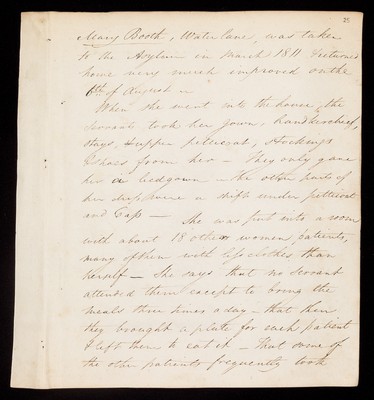 25
Mary Booth, Water lane, was taken
to the Asylum in March 1811 returned
home very much improved on the
6th of August
When she went into the house, the
servants took her gown, handkerchief,
stays, & upper petticoat, stockings
& shoes from her — They only gave
her a bedgown — the other parts of
her dress were a shift under petticoat
and Cap — She was put into a room
with about 18 other women patients,
many of them with less clothes than
herself — She says that no Servant
attended them except to bring the
meals three times a day — that then
they brought a plate for each patient
& left them to eat it — that some of
the other patients frequently took